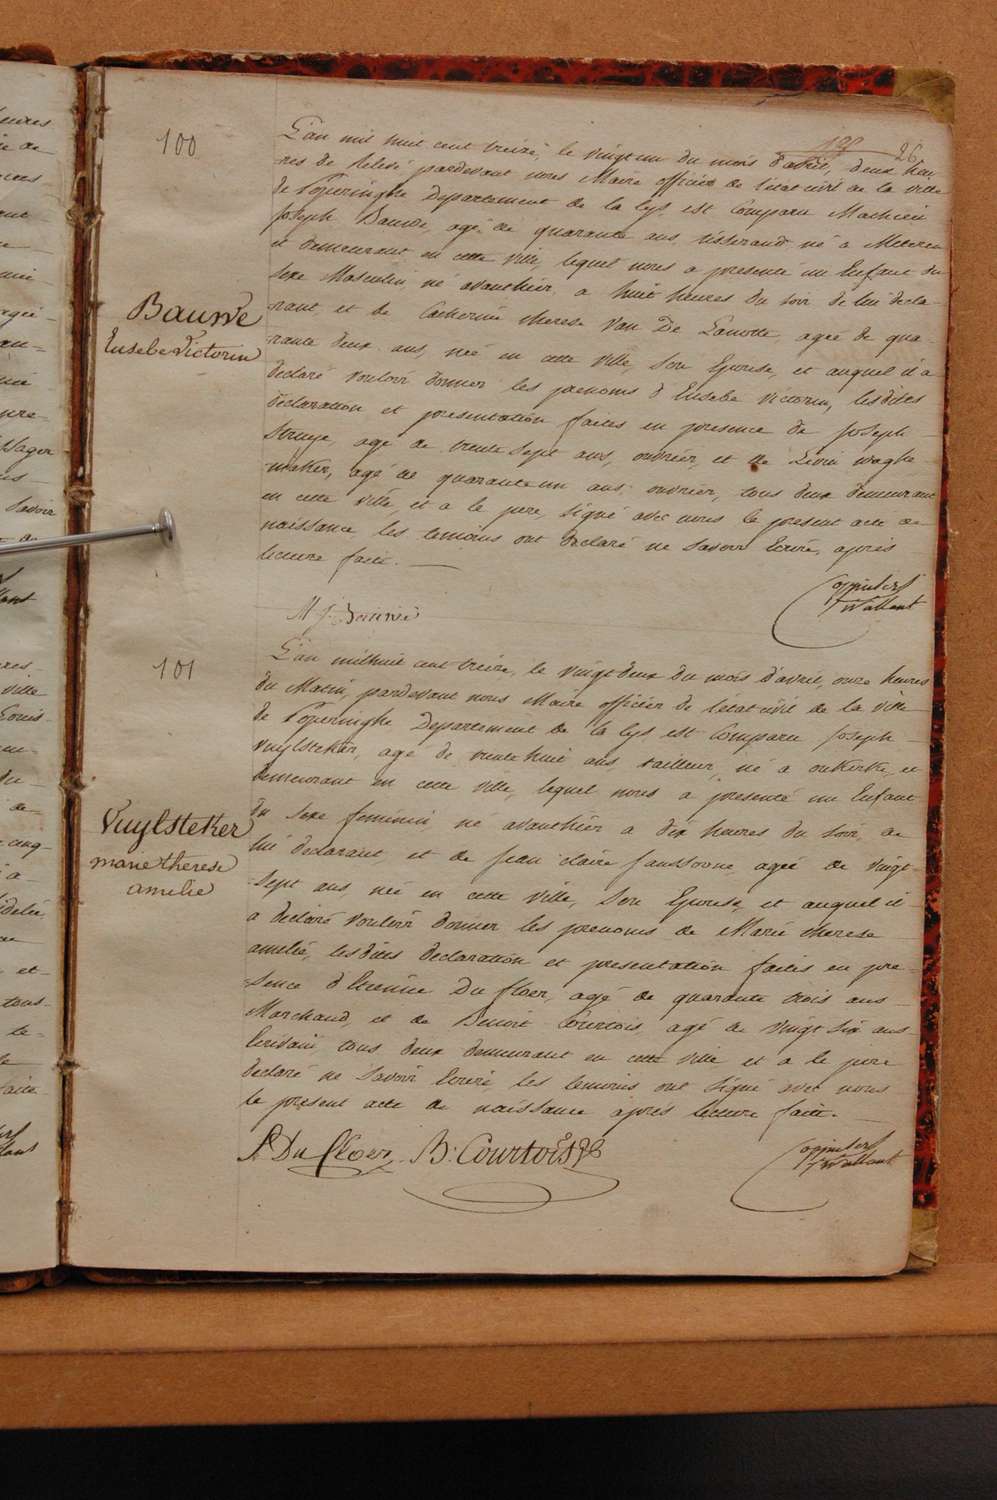 26
100
L'an mil huit cent treize, le vingt un du mois d'avril, deux heu-
res de relevé pardevant nous Maire officier de l'état civil de la ville
de Poperinghe Departement de la Lys, est Comparu Mathieu
Joseph Bauwe, agé de quarante ans, tisserand né a Meteren
et demeurant en cette ville, lequel nous a presenté un Enfant du
Sexe Masculin né avanthier, a huit heures du soir de lui decla-
rant, et de Catherine therese Van De Lanotte, agée de qua-
rante deux ans, née en cette ville, son Epouse, et auquel il a
declaré vouloir donner les prenoms d'Eusebe Victorin, lesdites
declaration et presentation faites en presence de Joseph
Struye, agé de trente sept ans, ouvrier, et de Livin waghe-
maker, agé de quarante un ans, ouvrier, tous deux demeurant
en cette ville, et a le pere, signé avec nous le present acte de
naissance, les temoins ont declaré ne savoir Ecrire, après
lecture faite.
Bauwe
Eusebe Victorin
M J Bauwe
101
L'an mil huit cent treize, le vingt deux du mois d'avril, onze heures
du Matin, pardevant nous Maire officier de l'état civil de la ville
de Poperinghe Departement de la Lys est Comparu Joseph
Vuylsteker, agé de trente huit ans, tailleur, né a oukerke, et
demeurant en cette ville, lequel nous a presenté un Enfant
du Sexe feminin né avanthier a dix heures du soir, de
lui declarant, et de Jean claire agée de vingt-
sept ans, née en cette ville, son Epouse, et auquel il
a declaré vouloir donner les prenoms de Marie therese
amelie, lesdites declaration et presentation faites en pre-
sence d'Etienne Du floer, agé de quarante trois ans
Marchand, et de Benoit Courtois, agé de vingt six ans
Ecrivain, tous deux demeurant en cette ville et a le pere
declaré ne savoir Ecrire les temoins ont signé avec nous
le present acte de naissance après lecture faite.
Vuylsteker
marie therese
amelie
Du floer B. Courtois